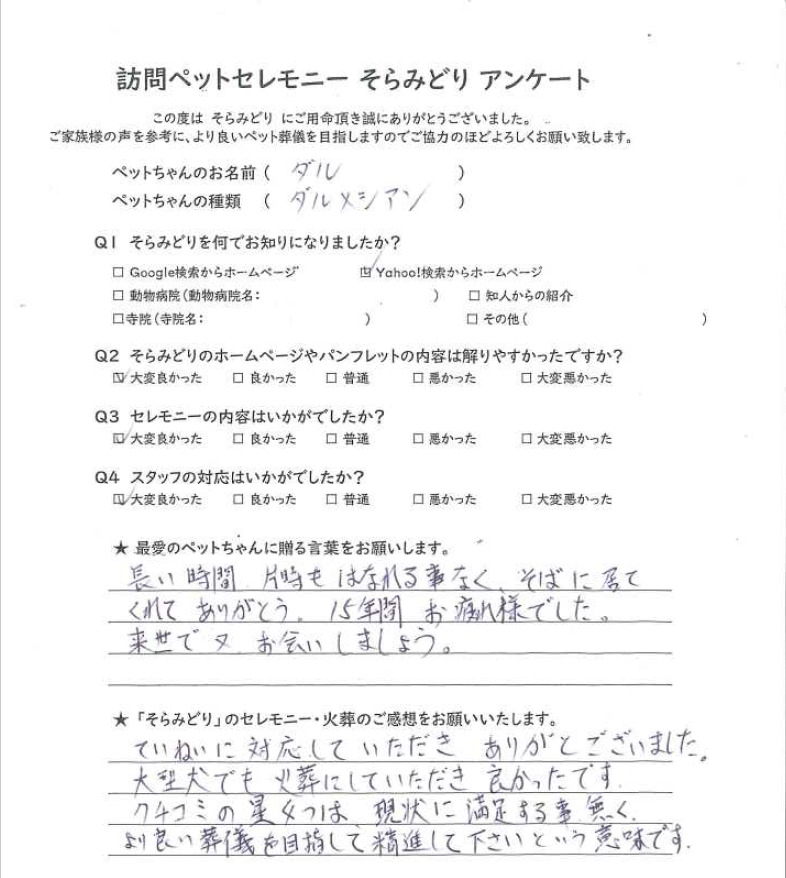 訪問ペットセレモニー そらみどり アンケート
この度は そらみどり にご用命頂き誠にありがとうございました。
ご家族様の声を参考に、より良いペット葬儀を目指しますのでご協力のほどよろしくお願い致します。
ペットちゃんのお名前 ( ダル )
ペットちゃんの種類 ( ダルメシアン )
Q1 そらみどりを何でお知りになりましたか?
□ Google検索からホームページ ☑ Yahoo!検索からホームページ
□ 動物病院(動物病院名: ) □ 知人からの紹介
□ 寺院(寺院名: ) □ その他( )
Q2 そらみどりのホームページやパンフレットの内容は解りやすかったですか?
☑ 大変良かった □ 良かった □ 普通 □ 悪かった □ 大変悪かった
Q3 セレモニーの内容はいかがでしたか?
☑ 大変良かった □ 良かった □ 普通 □ 悪かった □ 大変悪かった
Q4 スタッフの対応はいかがでしたか?
☑ 大変良かった □ 良かった □ 普通 □ 悪かった □ 大変悪かった
★ 最愛のペットちゃんに贈る言葉をお願いします。
長い時間 片時も はなれる事なく、そばに居て
くれて ありがとう。15年間 お疲れ様でした。
来世で又 お会いしましょう。
★「そらみどり」のセレモニー・火葬のご感想をお願いいたします。
ていねいに 対応して いただき ありがとございました。
大型犬でも 火葬にしていただき 良かったです.
クチコミの星4つは 現状に満足する事 無く.
より良い葬儀を目指して精進して下さいという意味です.